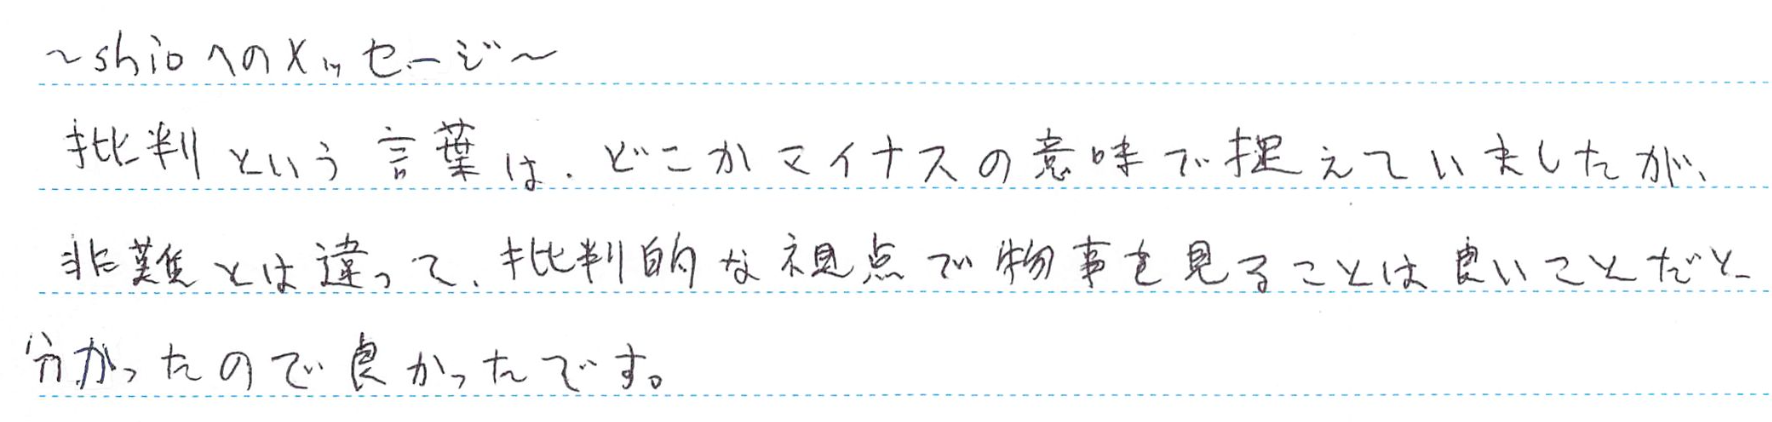 ～shioへのメッセージ～
批判という言葉は、どこかマイナスの意味で捉えていましたが、
非難とは違って、批判的な視点で物事を見ることは良いことだと
分かったので良かったです。